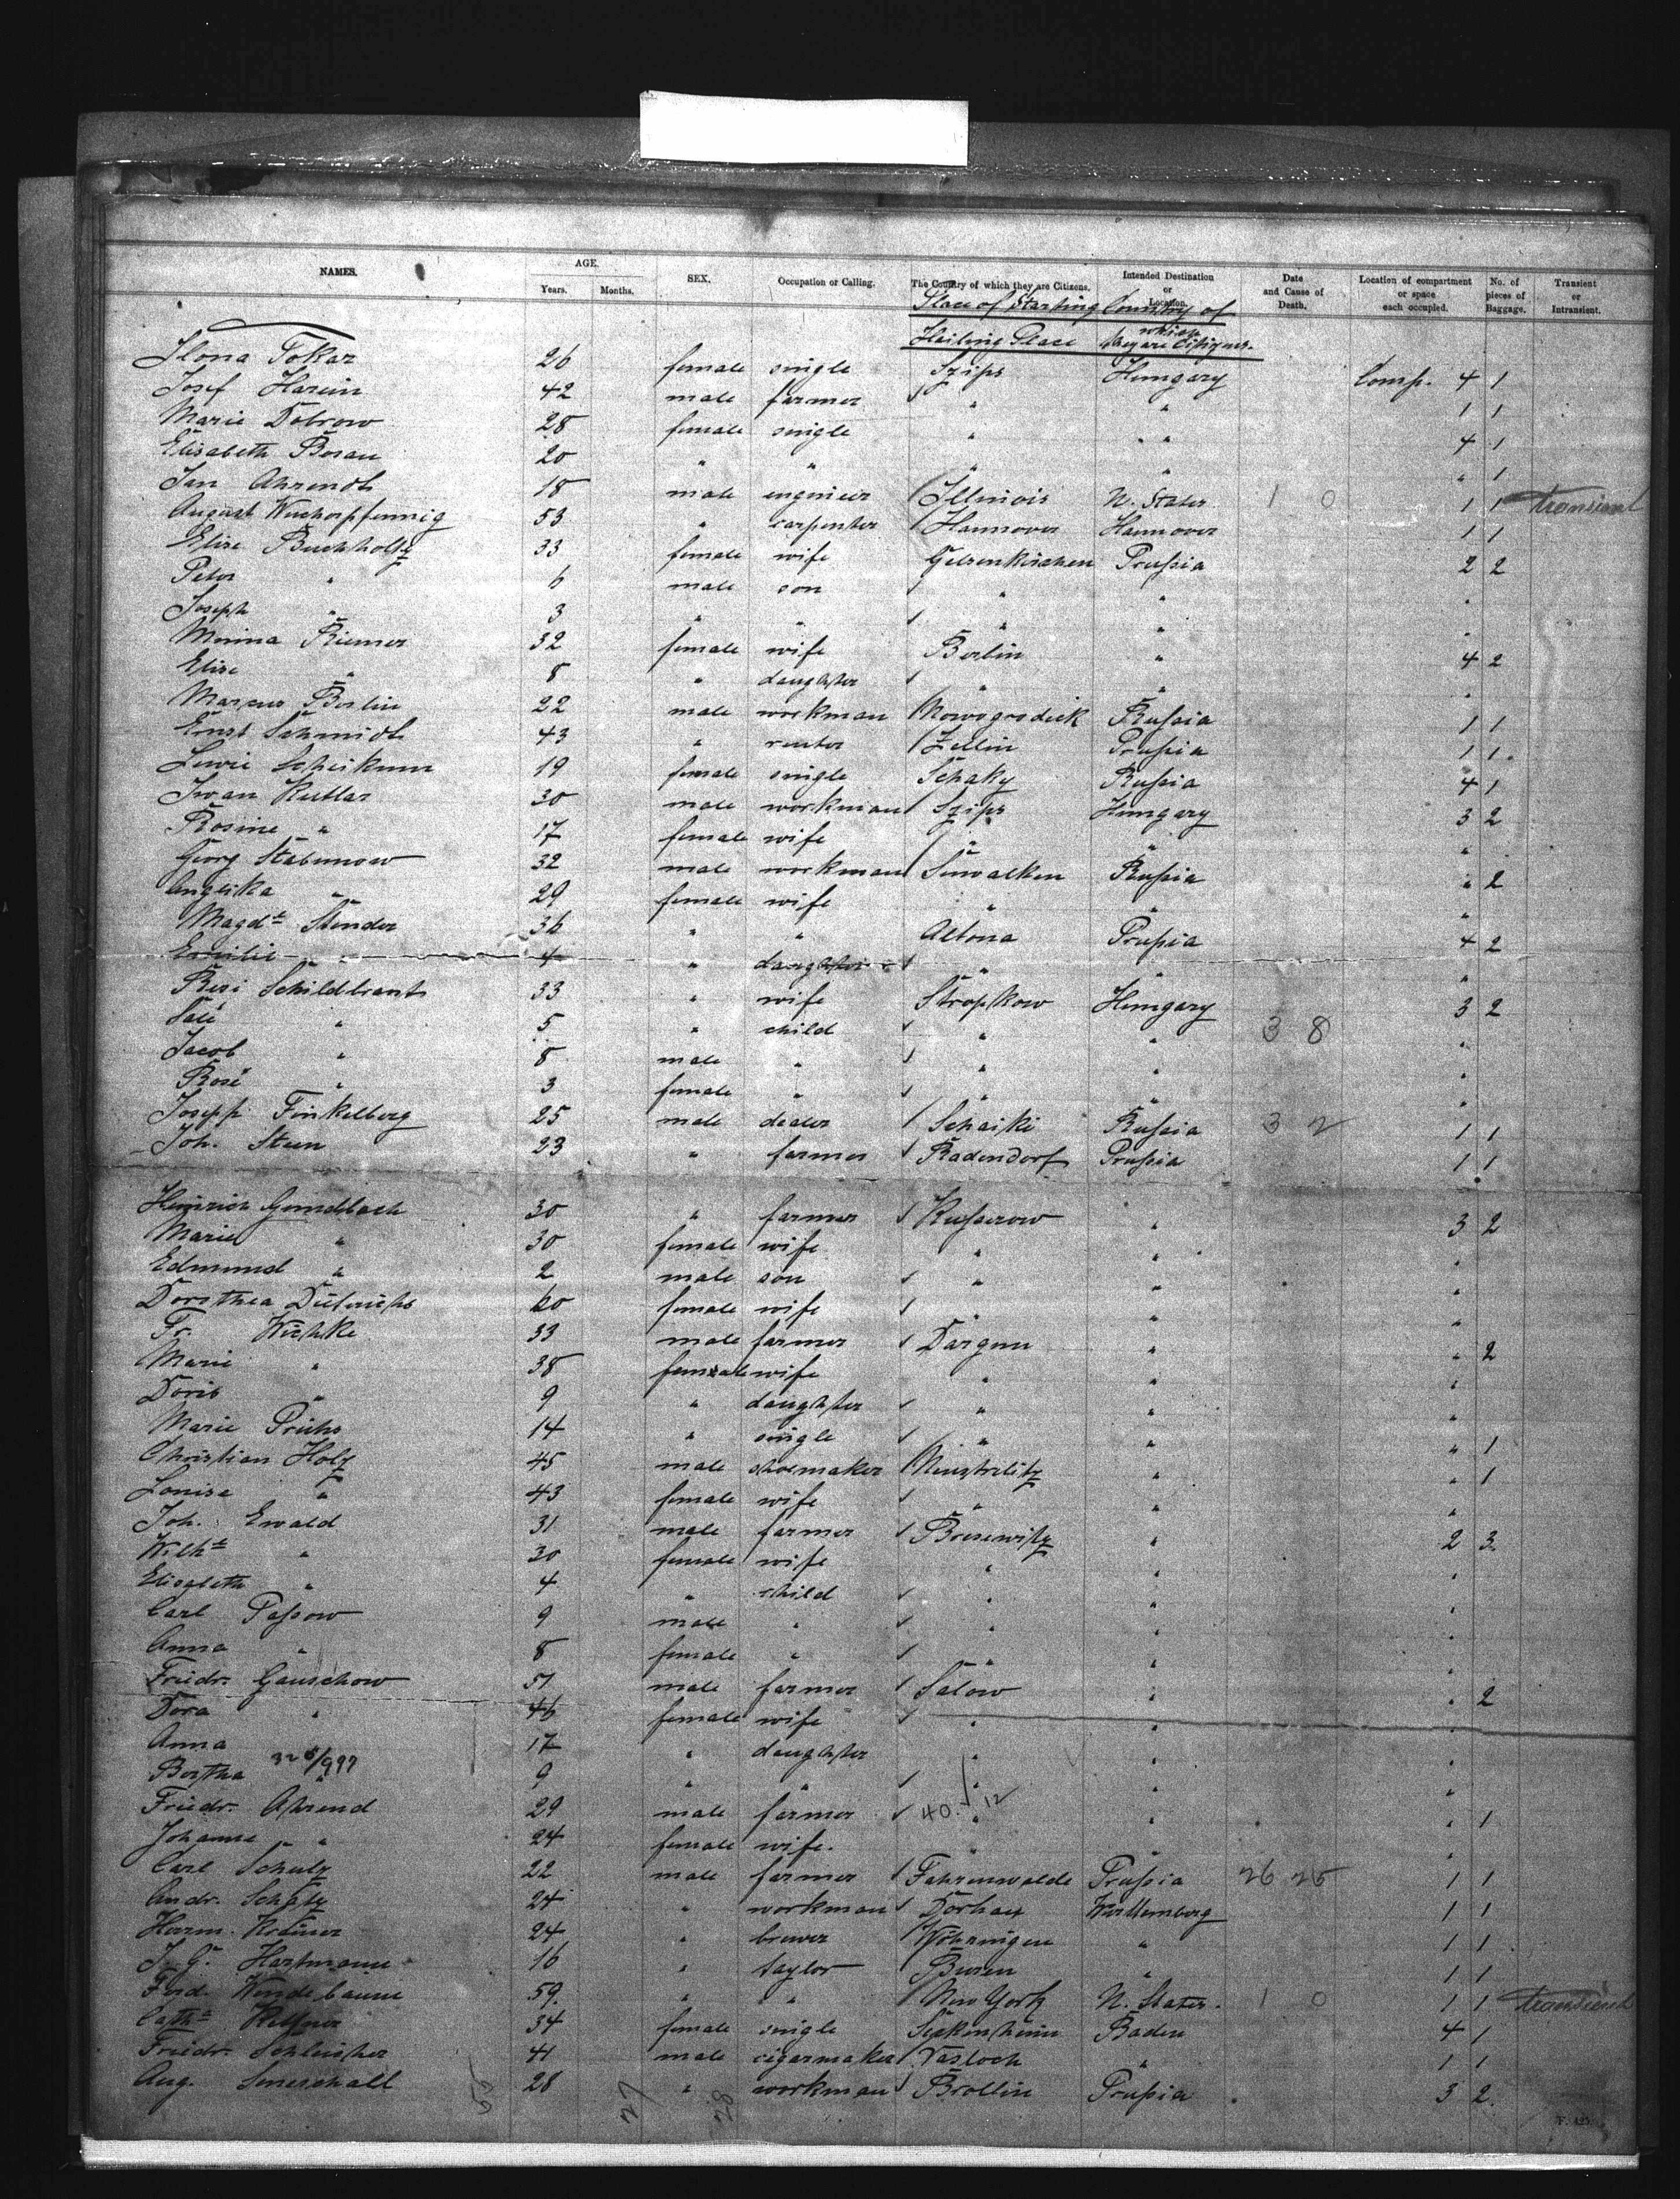 NAMES. AGE. Years. Months. SEX. Occupation or Calling. The Country of which they are Citizens. Intended Destination or Location. Date and Cause of Death. Location of compartment or space each occupied. No. of pieces of Baggage. Transient or Intransient.
Place of Starting Country of
Hailing Place which they are Citizens.
Ilona Tokar 26 female single Szips Hungary Comp. 4 1
Josef Harcin 42 male farmer " " 1 1
Marie Dobrow 28 female single " " 4 1
Elisabeth Bosau 20 " " " " " 1
Jan Ahrendt 18 male engineer Illinois U. States 1 0 1 1 transient
August Wuchorpfennig 53 " carpenter Hannover Hannover 1 1
Elise Buchholtz 33 female wife Gelsenkirchen Prussia 2 2
Peter " 6 male son " " "
Joseph " 3 " " " " "
Minna Riemer 32 female wife Berlin " 4 2
Elise " 8 " daughter " " "
Marcus Berlin 22 male workman Nowogrodeck Russia 1 1
Ernst Schmidt 43 " renter Zellin Prussia 1 1
Lewie 19 female single Schaky Russia 4 1
Iwan Kutlar 30 male workman Szips Hungary 3 2
Rosine " 17 female wife " " "
Georg Stabunow 32 male workman Suwalken Russia " 2
Angelika " 29 female wife " " "
Magdt Stender 36 " " Altona Prussia 4 2
Emilie " 4 " daughter " " "
Resi Schildkraut 33 " wife Stropkow Hungary 3 2
Sali " 5 " child " " 3 8 "
Jacob " 8 male " " " "
Rosi " 3 female " " " "
Joseph Finkelberg 25 male dealer Schaiki Russia 3 2 1 1
Joh. Steen 23 " farmer Radendorf Prussia 1 1
Heinrich Gundlach 30 " farmer Kusserow " 3 2
Marie " 30 female wife " " "
Edmund " 2 male son " " "
Dorothea Dietrichs 60 female wife " " "
Fr. Wichke 33 male farmer Dargun " " 2
Marie " 38 female wife " " "
Doris " 9 " daughter " " "
Marie Prühs 14 " single " " " 1
Christian Holz 45 male shoemaker Neustrelitz " " 1
Louise " 43 female wife " " "
Joh. Ewald 31 male farmer Bresewitz " 2 3
Wilh " 30 female wife " " "
Elisabeth " 4 " child " " "
Carl Passow 9 male " " " "
Anna " 8 female " " " "
Friedr. Gauschow 51 male farmer Salow " " 2
Dora " 46 female wife " " "
Anna 17 " daughter " " "
Bertha " 9 " " " " "
Friedr. Ahrend 29 male farmer " " " 1
Johanna " 24 female wife. " " "
Carl Schulz 22 male farmer Fahrenwalde Prussia 26 25 1 1
Andr. Schätz 24 " workman Dorhan Württemberg 1 1
Herm. Krämer 24 " brewer Wöhringen " 1 1
J. G. Hartmann 16 " taylor Buren " 1 1
Ferd. Wendebaum 59. " " New York U. States. 1 0 1 1 transient
Cath Kettner 34 female single Seckenheim Baden 4 1
Friedr. Schleicher 41 male cigarmaker Hasloch " 1 1
Aug. Smerschall 28 " workman Brollin Prussia 3 2.
55 27 28